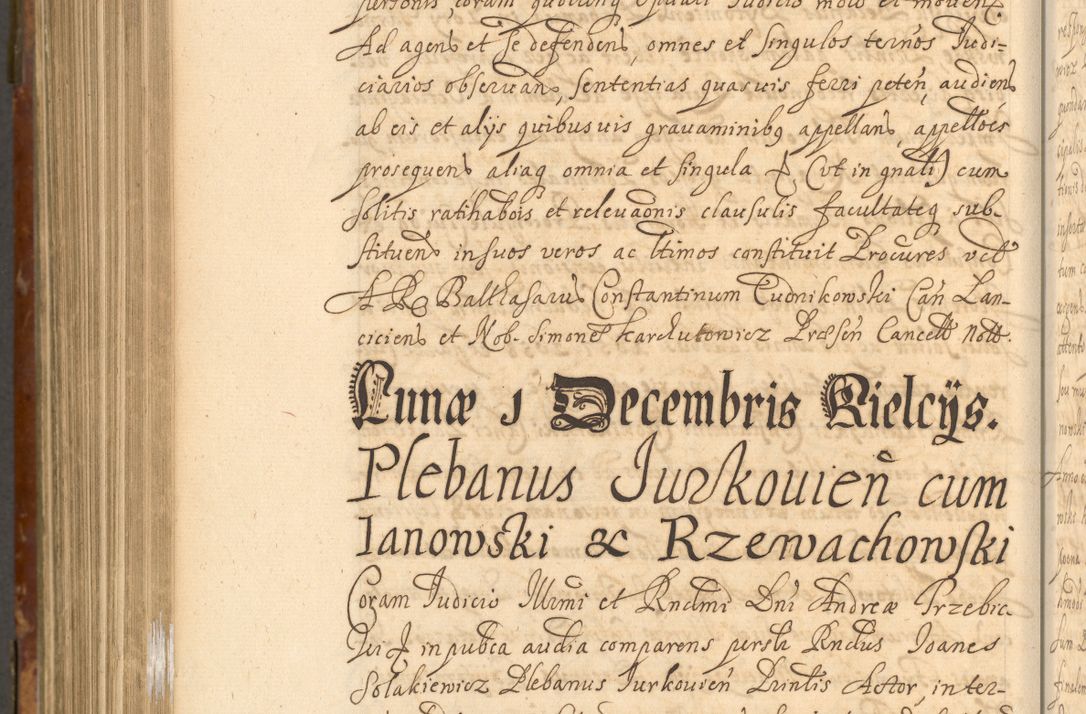 personis, coram quocunq
Ad agend et se defendend, omnes et singulos ternos Iudi-
ciarios observand, sententias quasvis ferri peten, audiend
ab eis et alijs quibusvis gravaminibq appelland, appellões
prosequend aliaq omnia et singula & (ut in gnali) cum
solitis ratihabõis et relevaõnis clausulis facultateq sub-
stituend in suos veros ac ltimos constituit Procũres vclt
A R Balthasarũ Constantinum Cudnikowski Can Lan-
ciciens et Nob. Simonẽ Karchutowicz Præsen Cancell Nott.
Lunæ 1 Decembris Kielcijs.
Plebanus Jurkovien cum
Ianowski & Rzewachowski
Coram Iudicio Illrmi et Rndmi Dni Andreæ Trzebic-
ki & in pubca audia comparens persłr Rndus Ioanes
Solakiewicz Plebanus Iurkovien Printis Actor, in ter-